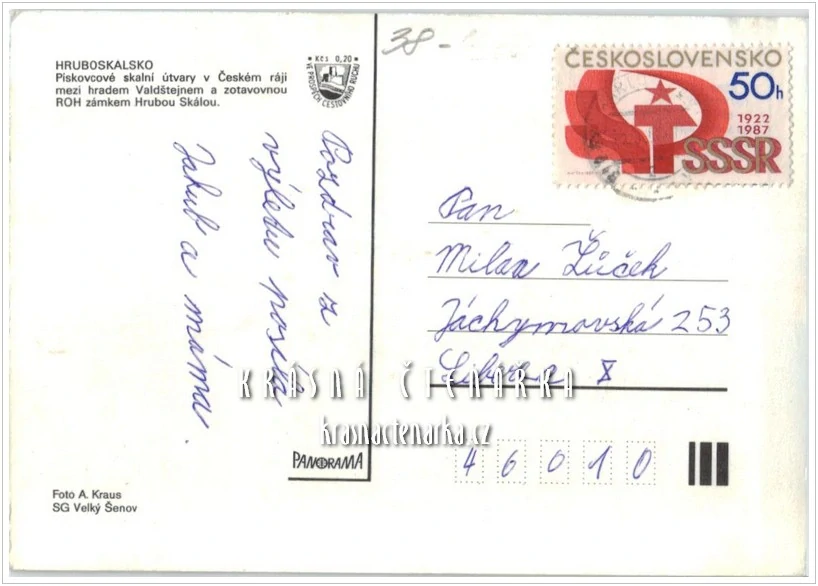 38-
HRUBOSKALSKO
Pískovcové skalní útvary v Českém ráji
mezi hradem Valdštejnem a zotavovnou
ROH zámkem Hrubou Skálou.
Kčs 0,20
VE PROSPĚCH CESTOVNÍHO RUCHU
ČESKOSLOVENSKO
50h
1922
1987
SSSR
Pozdrav z
výletu posílá
Jakub a máma.
Pan
Milan Žůček
Jáchymovská 253
Liberec X
KRÁSNÁ ČTENÁŘKA
krasnactenarka.cz
46010
PANORAMA
Foto A. Kraus
SG Velký Šenov